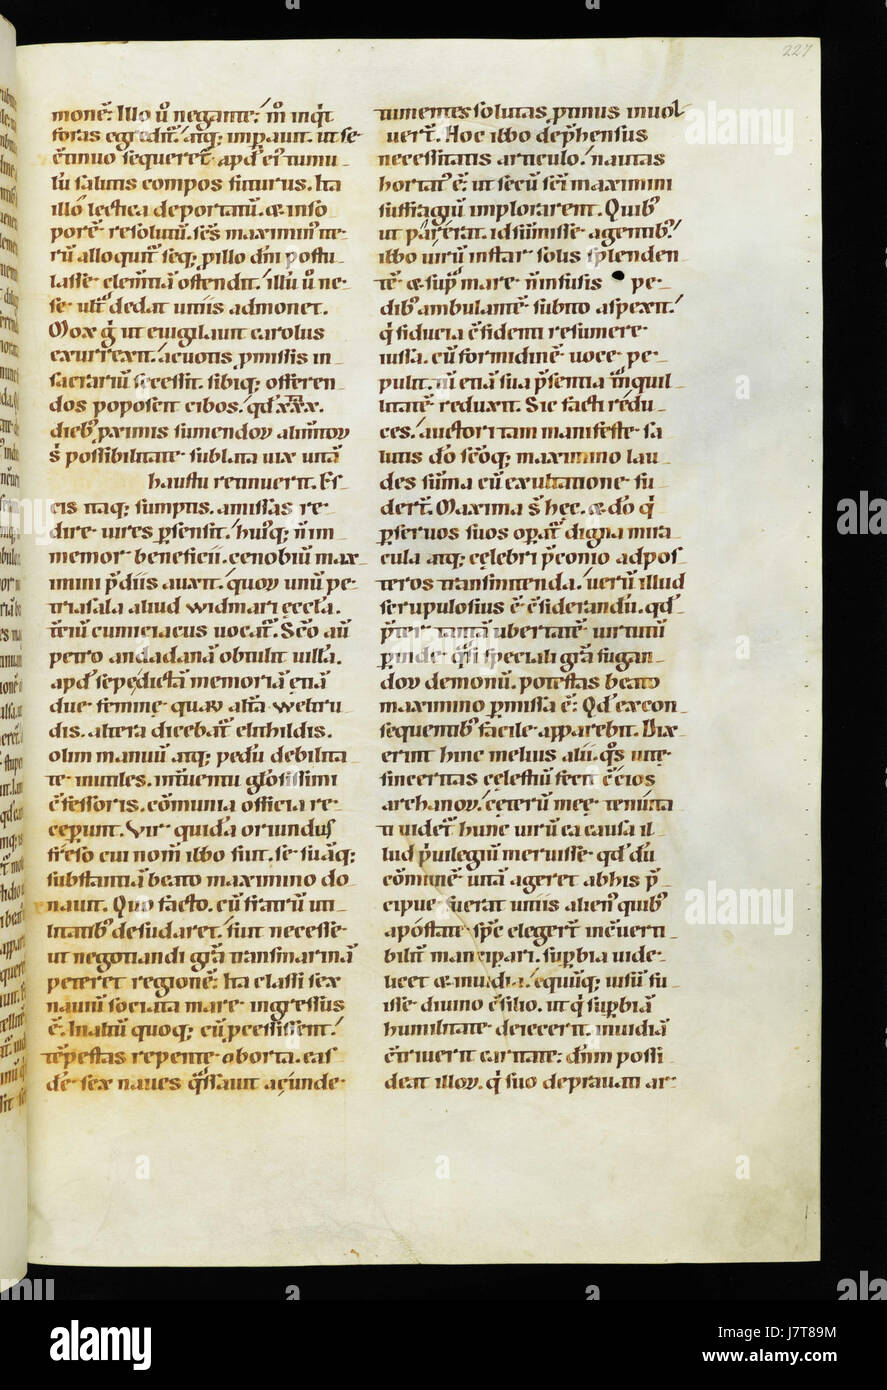 227
monē. Illo ū negante. m̄ inq̄t
foras egredit̄. atq; imp̄auit. ut se
c̄tinuo sequeret̄. apd̄ ei tumu
lū salutis compos futurus. Ita
illo lectica deportatū. & in so
pore resolutū. sc̄s maximin̄ ite
rū alloquit̄ seq; p illo dn̄i postu
lasse clem̄tiā ostendit. illū ū ne
se ult̄ dedat uitiis admonet.
Mox q̄ ut euigilauit carolus
exurrexit. ac uotis p̄missis in
sacrariū secessit. sibiq; offeren
dos poposcit cibos. qd̄ xxx.
dieb; p̄ximis sumendoꝝ alim̄toꝝ
s̄ possibilitate sublata uix unā
haustu retinuerit. Es
cis itaq; sumptis. amissas re
dire uires p̄sensit. huiq; n̄ im
memor beneficii. cenobiū max
imini p̄diis auxit. quoꝝ unū pe
tri a sala aliud widmari eccl̄a.
t̄ciū cumciacus uocat̄. Sc̄o aū
petro andadanā obtulit uillā.
apd̄ sepedictā memoriā etiā
due feminę quaꝝ alt̄a weltru
dis. altera dicebat̄ elithildis.
olim manuū atq; pedū debilita
te inutiles. int̄uentu glōsissimi
c̄fessoris. cōmunia officia re
ceperunt. Vir quidā oriundus
freso cui nom̄ ibbo fuit. se suāq;
substantiā beato maximino do
nauit. Quo facto. cū fratrū uti
litatib; desudaret. fuit necesse
ut negotiandi gr̄a transmarinā
peteret regionē. Ita classi sex
nauiū sociata mare ingressus
ē. In altū quoq; cū p̄cessissent.
tēpestas repente oborta. eas
dē sex naues q̄ssauit ac unde
tumentes solutas p̄tinus inuol
uert̄. Hoc ibbo dep̄hensus
necessitatis articulo. nautas
hortat̄ ē. ut secū sc̄i maximini
suffragiū implorarent. Quib;
ut par erat. id sūmisse agentib;
ibbo uirū instar solis splenden
tē & sup̄ mare n̄ infusis pe
dib; ambulantē subito aspexit.
q̄ fiducia c̄fidenti resumere
iussa. cū formidinē uoce pe
pulit. tū etiā sua p̄sentia t̄nquil
litatē reduxit. Sic facti redu
ces. auctori tam manifeste sa
lutis dō sc̄oq; maximino lau
des sūma cū exultatione fu
dert̄. Maxima s̄ hec. & dō q̄
p̄ seruos suos op̄at̄ digna mira
cula atq; celebri p̄conio ad pos
teros transmittenda. uerū illud
scrupulosius ē c̄siderandū. qd̄
p̄ter tantā ubertatē uirtutū
p̄inde q̄si speciali gr̄a fugan
doꝝ demonū. potestas beato
maximino p̄missa ē. Qd̄ ex con
sequentib; facile apparebit. Dix
erint hinc melius alii. q̄s uitę
sinceritas celestiū fecit c̄cios
archanoꝝ. ceterū meę temita
ti uidet̄ hunc uirū ea causa il
lud p̄uilegiū meruisse qd̄ dū
cōmunē uitā ageret ab his p̄
cipue fuerat uitiis alien̄ quib;
apostatę sp̄c elegert̄ incuerti
biliť mancipari. sup̄bia uide
licet & inuidia. equiq; uisū fu
isse diuino c̄silio. ut q̄ sup̄biā
humilitate deiecerit. inuidiā
c̄triuerit caritate. dn̄m possi
deat illoꝝ. q̄ suo deprauati ar
alamy
Image ID: J7T89M
www.alamy.com